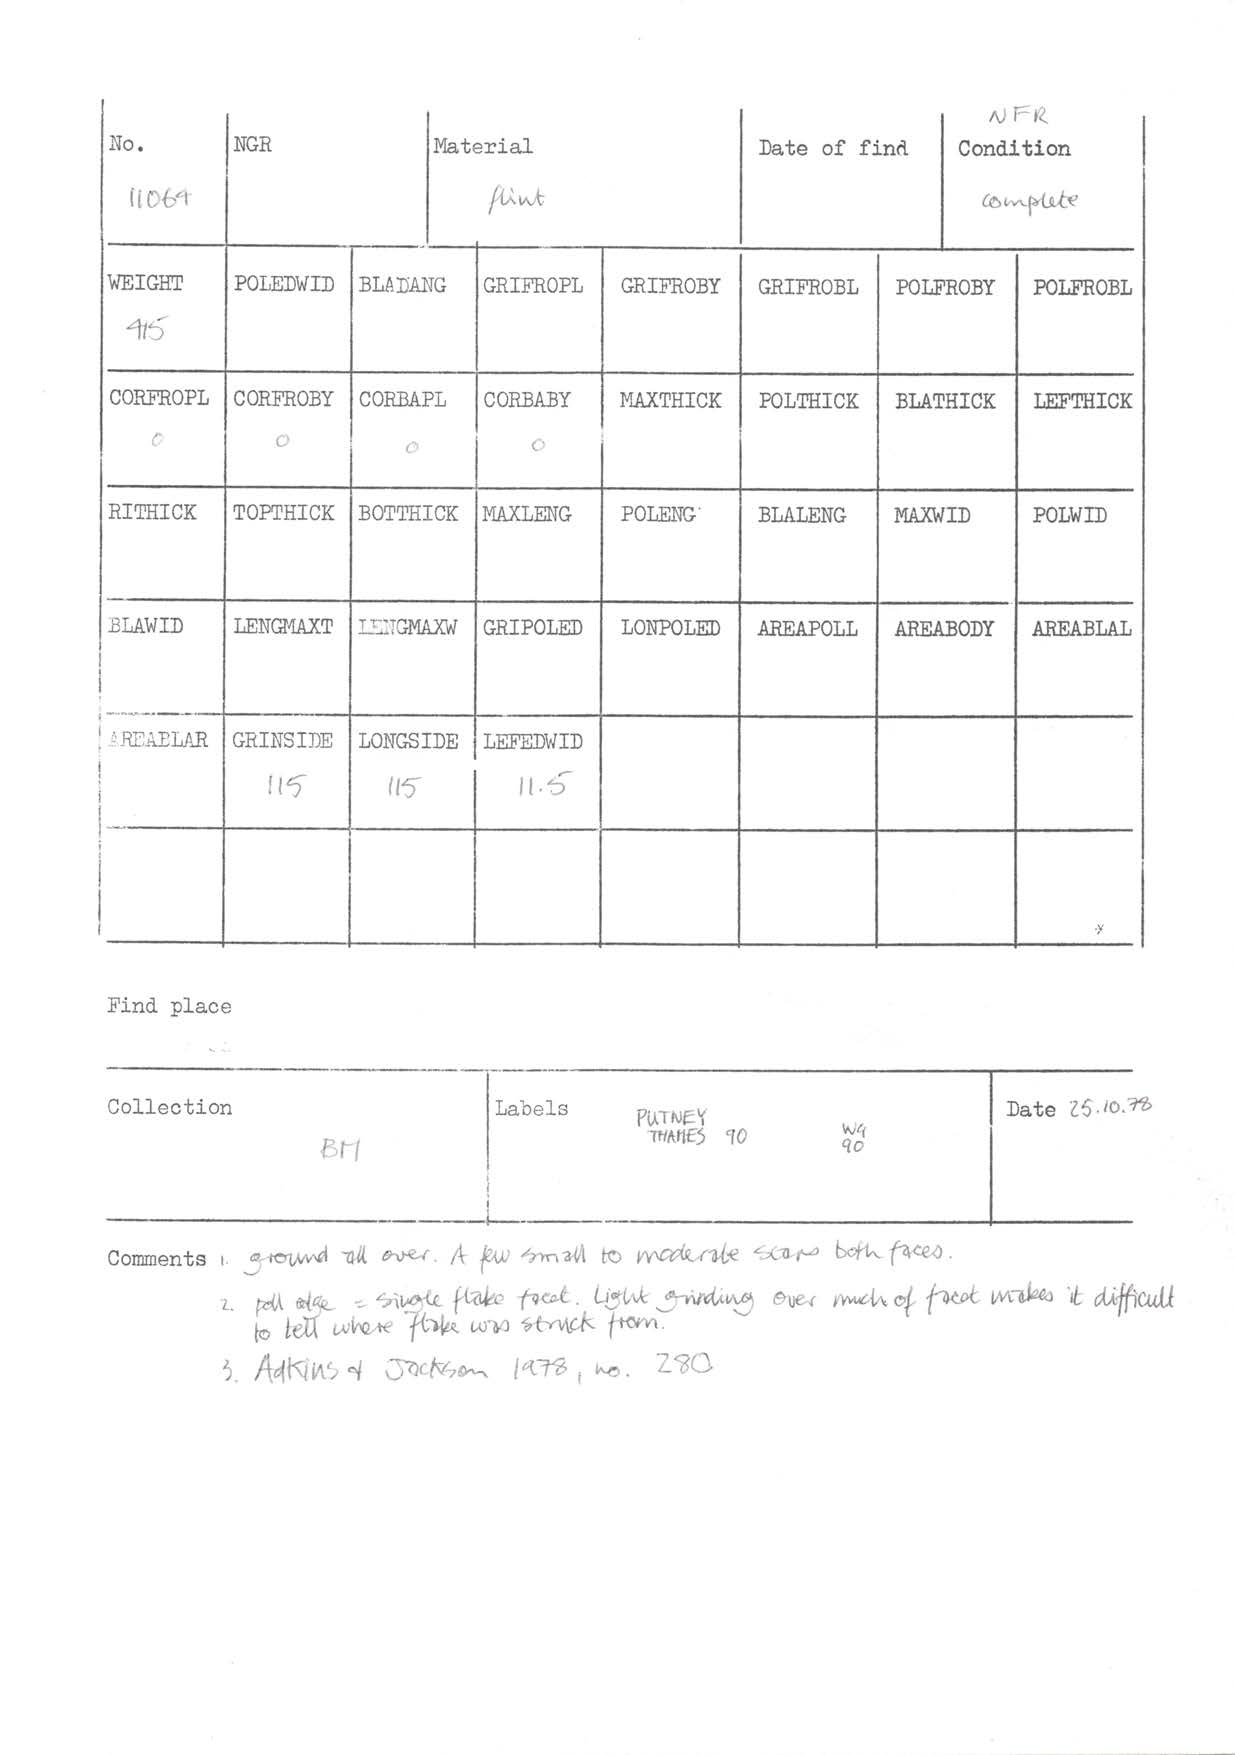 NFR
No. NGR Material Date of find Condition
11069 flint complete
WEIGHT POLEDWID BLADANG GRIFROPL GRIFROBY GRIFROBL POLFROBY POLFROBL
415
CORFROPL CORFROBY CORBAPL CORBABY MAXTHICK POLTHICK BLATHICK LEFTHICK
0 0 0 0
RITHICK TOPTHICK BOTTHICK MAXLENG POLENG BLALENG MAXWID POLWID
BLAWID LENGMAXT LENGMAXW GRIPOLED LONPOLED AREAPOLL AREABODY AREABLAL
AREABLAR GRINSIDE LONGSIDE LEFEDWID
115 115 11.5
Find place
Collection Labels Date 25.10.78
BM PUTNEY
THAMES 90 WG
90
Comments 1. ground all over. A few small to moderate scars both faces.
2. poll edge = single flake facet. Light grinding over much of facet makes it difficult
to tell where flake was struck from.
3. Adkins & Jackson 1978, no. 280